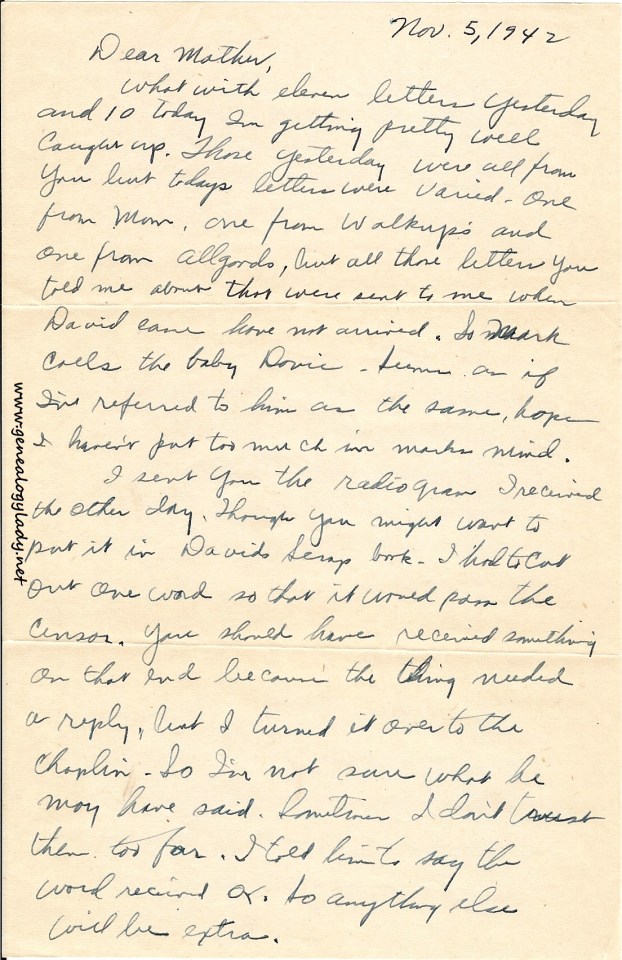 Nov. 5, 1942
Dear Mother,
What with eleven letters yesterday
and 10 today I'm getting pretty well
caught up. Those yesterday were all from
you but todays letters were varied - one
from Mom, one from Walkups and
one from Allgoods, but all those letters you
told me about that were sent to me when
David came have not arrived. So Mark
calls the baby Dovie - seems as if
I've referred to him as the same, hope
I haven't put too much in marks mind.
I sent you the radiogram I received
the other day. Though you might want to
put it in Davids scrap book - I had to cut
out one word so that it would pass the
censor. You should have received something
on that end because the thing needed
a reply, but I turned it over to the
Chaplin - So I'm not sure what he
may have said. Sometimes I don't trust
them too far. I told him to say the
word received OK. So anything else
will be extra.
www.genealogylady.net